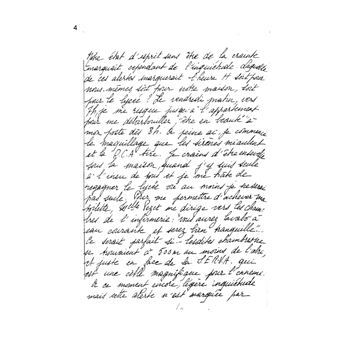 4
état d'esprit sans être de la crainte
marquait cependant de l'inquiétude
de ces alertes marquerait l'heure H soit pour
nous-mêmes soit pour notre maison, soit
pour le lycée ! Le vendredi matin, vers
7h, je me risque jusqu'à l'appartement
pour me débarbouiller, "être en beauté" à
mon poste dès 8h. À peine ai-je commencé
le maquillage que les sirènes miaulent
et la D.C.A. tire. Je crains d'être ensevelie
sous la maison quand j'y suis seule
à l'insu de tous et je me hâte de
regagner le lycée où au moins je ne serai
pas seule. Pour me permettre d'achever ma
toilette, me dirige vers les cham-
bres de l'infirmerie : "vous aurez lavabo à
eau courante et serez bien tranquille".
Ce serait parfait si lesdites chambres
se trouvaient à 200m au moins de l'
et juste en face de la qui
est une cible magnifique pour l'ennemi.
À ce moment encore, légère inquiétude
mais cette alerte n'est marquée par